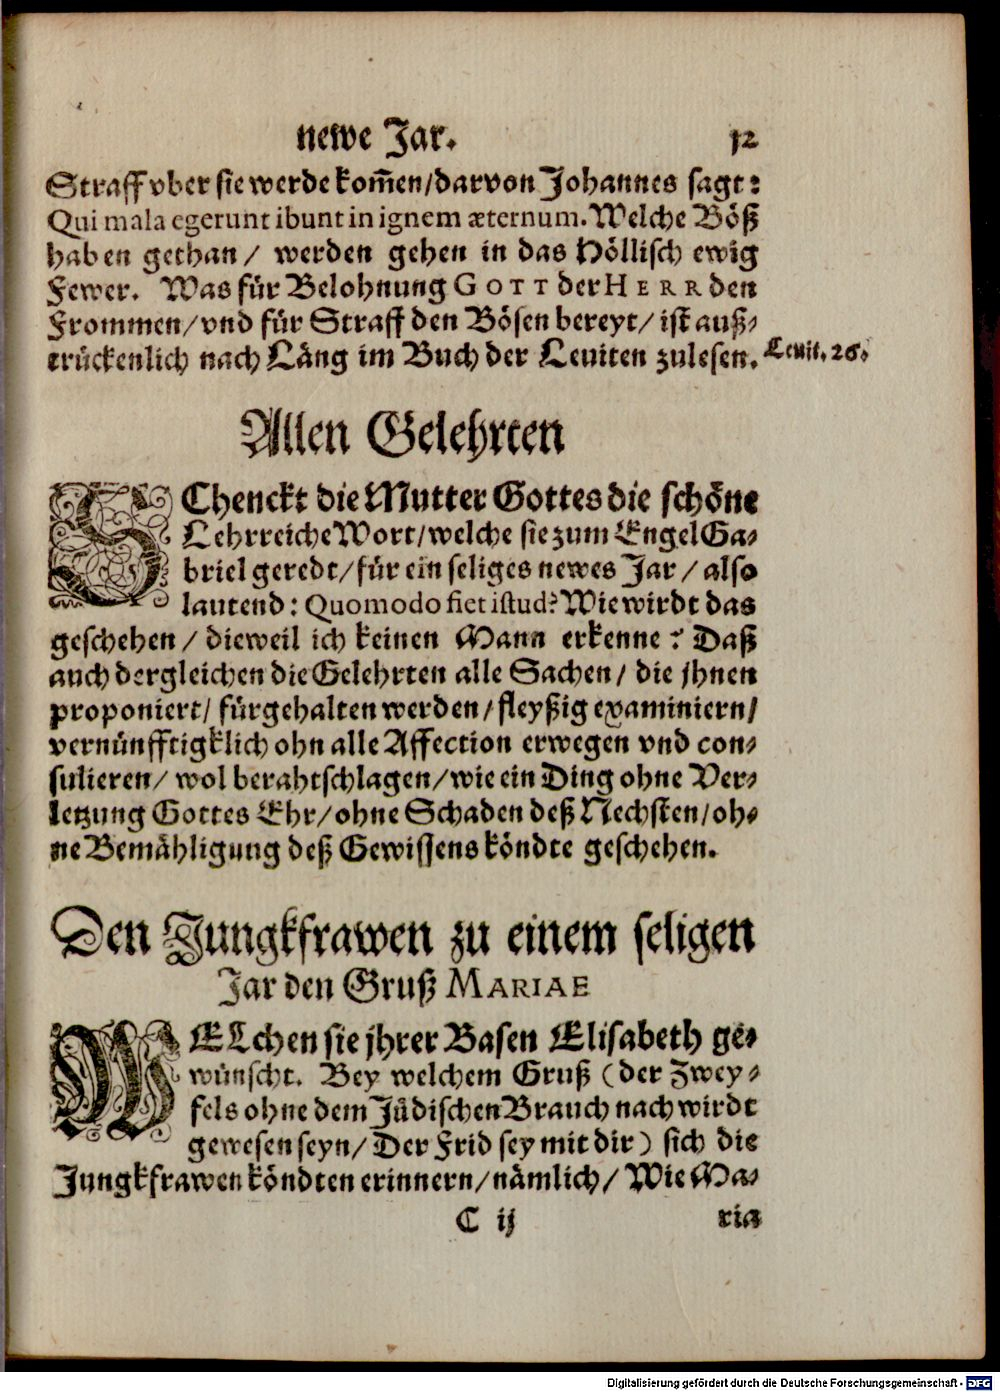 newe Jar. 12
Straff vber sie werde kom̄en/darvon Johannes sagt:
Qui mala egerunt ibunt in ignem æternum. Welche Böß
haben gethan/ werden gehen in das Höllisch ewig
Fewer. Was für Belohnung GOTT der HERR den
Frommen/vnd für Straff den Bösen bereyt/ist auß-
trückenlich nach Läng im Buch der Leuiten zulesen. Leuit. 26.
Allen Gelehrten
SChenckt die Mutter Gottes die schöne
Lehrreiche Wort/welche sie zum Engel Ga-
briel geredt/für ein seliges newes Jar/also
lautend: Quomodo fiet istud? Wie wirdt das
geschehen/dieweil ich keinen Mann erkenne? Daß
auch dergleichen die Gelehrten alle Sachen/ die jhnen
proponiert/fürgehalten werden/fleyßig examiniern/
vernünfftigklich ohn alle Affection erwegen vnd con-
sulieren/ wol berahtschlagen/wie ein Ding ohne Ver-
letzung Gottes Ehr/ohne Schaden deß Nechsten/oh-
ne Bemähligung deß Gewissens köndte geschehen.
Den Jungkfrawen zu einem seligen
Jar den Gruß MARIAE
WELchen sie jhrer Basen Elisabeth ge-
wünscht. Bey welchem Gruß (der Zwey-
fels ohne dem Jüdischen Brauch nach wirdt
gewesen seyn/Der Frid sey mit dir) sich die
Jungkfrawen köndten erinnern/nämlich/Wie Ma-
C ij ria
Digitalisierung gefördert durch die Deutsche Forschungsgemeinschaft - DFG